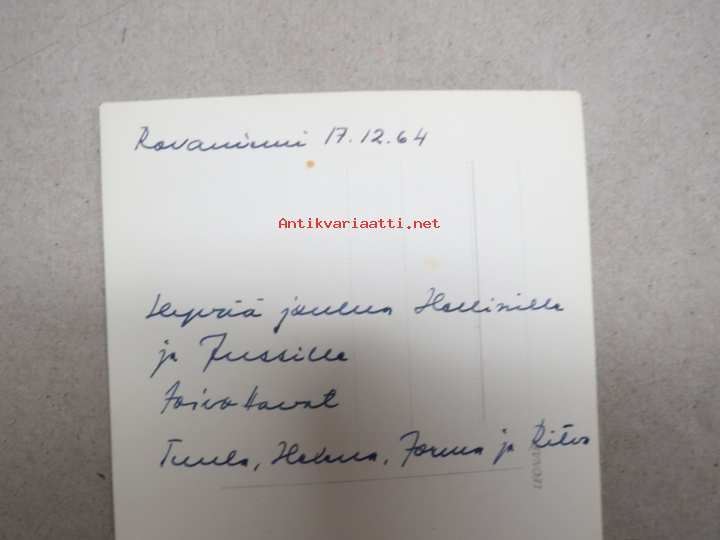 Rovaniemi 17.12.64
Antikvariaatti.net
Hyvää joulua
ja Jussille
toivottavat
Tuula, Helena, Jorma ja Ritva